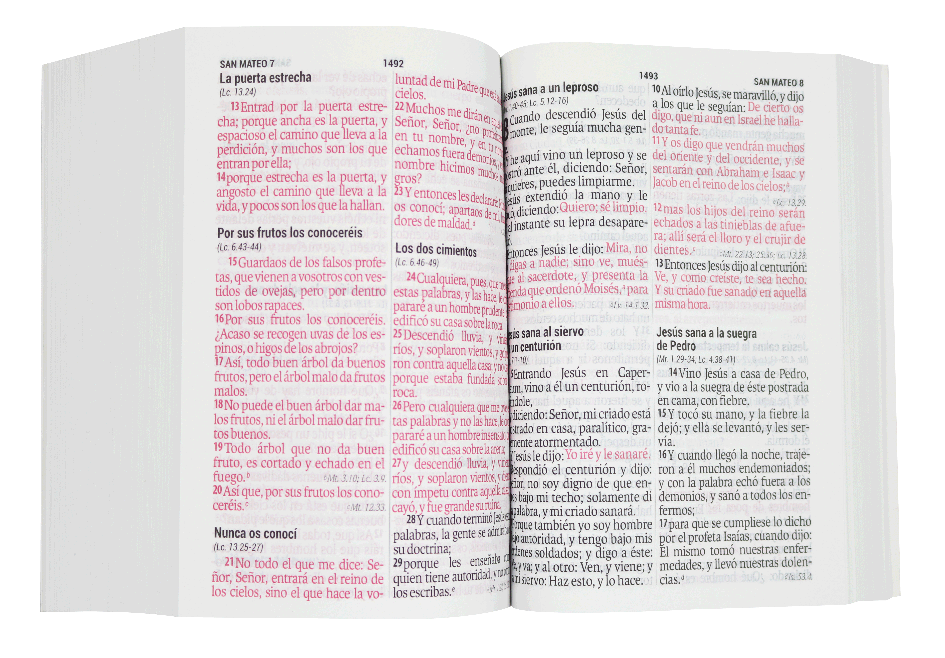 SAN MATEO 7
1492
La puerta estrecha
(Lc. 13.24)
13Entrad por la puerta estre-
cha; porque ancha es la puerta, y
espacioso el camino que lleva a la
perdición, y muchos son los que
entran por ella;
14porque estrecha es la puerta, y
angosto el camino que lleva a la
vida, y pocos son los que la hallan.
Por sus frutos los conoceréis
(Lc. 6.43-44)
15Guardaos de los falsos profe-
tas, que vienen a vosotros con ves-
tidos de ovejas, pero por dentro
son lobos rapaces.
16Por sus frutos los conoceréis.
¿Acaso se recogen uvas de los es-
pinos, o higos de los abrojos?
17Así, todo buen árbol da buenos
frutos, pero el árbol malo da frutos
malos.
18No puede el buen árbol dar ma-
los frutos, ni el árbol malo dar fru-
tos buenos.
19Todo árbol que no da buen
fruto, es cortado y echado en el
fuego.b bMt. 3.10; Lc. 3.9.
20Así que, por sus frutos los cono-
ceréis.c cMt. 12.33.
Nunca os conocí
(Lc. 13.25-27)
21No todo el que me dice: Se-
ñor, Señor, entrará en el reino de
los cielos, sino el que hace la vo-
luntad de mi Padre que
cielos.
22Muchos me dirán en
Señor, Señor, ¿no
en tu nombre, y en
echamos fuera
nombre hicimos
gros?
23Y entonces les
os conocí; apartaos de
dores de maldad.
Los dos cimientos
(Lc. 6.46-49)
24Cualquiera, pues, que
estas palabras, y las hace, le
pararé a un hombre prudente
edificó su casa sobre la roca.
25Descendió lluvia, y
ríos, y soplaron vientos, y
ron contra aquella casa; y no
porque estaba fundada
roca.
26Pero cualquiera que me
tas palabras y no las hace, le
pararé a un hombre
edificó su casa sobre la arena;
27y descendió lluvia, y
ríos, y soplaron vientos, y
con ímpetu contra aquella
cayó, y fue grande su ruina.
28Y cuando terminó Jesús
palabras, la gente se
su doctrina;
29porque les enseñaba
quien tiene autoridad, y no
los escribas.e
1493
SAN MATEO 8
sana a un leproso
Lc. 5.12-16)
Cuando descendió Jesús del
monte, le seguía mucha gen-
he aquí vino un leproso y se
ante él, diciendo: Señor,
quieres, puedes limpiarme.
extendió la mano y le
diciendo: Quiero; sé limpio.
instante su lepra desapare-
Jesús le dijo: Mira, no
digas a nadie; sino ve, mués-
al sacerdote, y presenta la
que ordenó Moisés,a para
a ellos. aLv. 14.1-32.
sana al siervo
un centurión
Entrando Jesús en Caper-
vino a él un centurión, ro-
diciendo: Señor, mi criado está
en casa, paralítico, gra-
atormentado.
Jesús le dijo: Yo iré y le sanaré.
el centurión y dijo:
no soy digno de que en-
bajo mi techo; solamente di
palabra, y mi criado sanará.
también yo soy hombre
autoridad, y tengo bajo mis
soldados; y digo a éste:
y va; y al otro: Ven, y viene; y
siervo: Haz esto, y lo hace.
10Al oírlo Jesús, se maravilló, y dijo
a los que le seguían: De cierto os
digo, que ni aun en Israel he halla-
do tanta fe.
11Y os digo que vendrán muchos
del oriente y del occidente, y se
sentarán con Abraham e Isaac y
Jacob en el reino de los cielos;b
bLc. 13.29.
12mas los hijos del reino serán
echados a las tinieblas de afue-
ra; allí será el lloro y el crujir de
dientes.c cMt. 22.13; 25.30; Lc. 13.28.
13Entonces Jesús dijo al centurión:
Ve, y como creíste, te sea hecho.
Y su criado fue sanado en aquella
misma hora.
Jesús sana a la suegra
de Pedro
(Mr. 1.29-34, Lc. 4.38-41)
14Vino Jesús a casa de Pedro,
y vio a la suegra de éste postrada
en cama, con fiebre.
15Y tocó su mano, y la fiebre la
dejó; y ella se levantó, y les ser-
vía.
16Y cuando llegó la noche, traje-
ron a él muchos endemoniados;
y con la palabra echó fuera a los
demonios, y sanó a todos los en-
fermos;
17para que se cumpliese lo dicho
por el profeta Isaías, cuando dijo:
Él mismo tomó nuestras enfer-
medades, y llevó nuestras dolen-
cias.d dIs. 53.4.